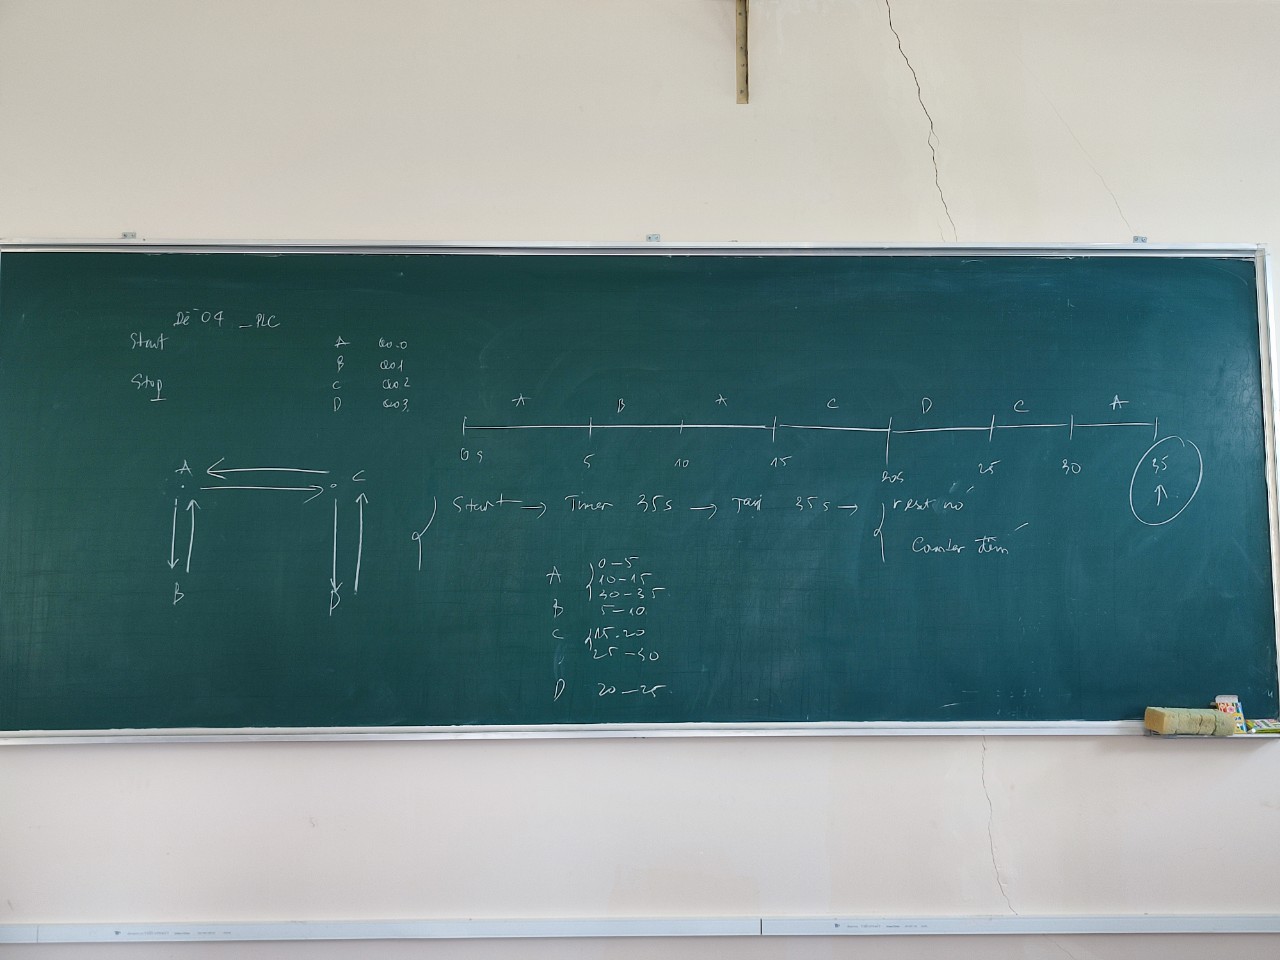 Đề 04 _ PLC
Start
Stop
A Q0.0
B Q0.1
C Q0.2
D Q0.3
A B A C D C A
0s 5 10 15 20s 25 30 35
A C
B D
Start → Timer 35s → Tại 35s → reset nó
Counter đếm
A 0-5
10-15
30-35
B 5-10
C 15-20
25-30
D 20-25